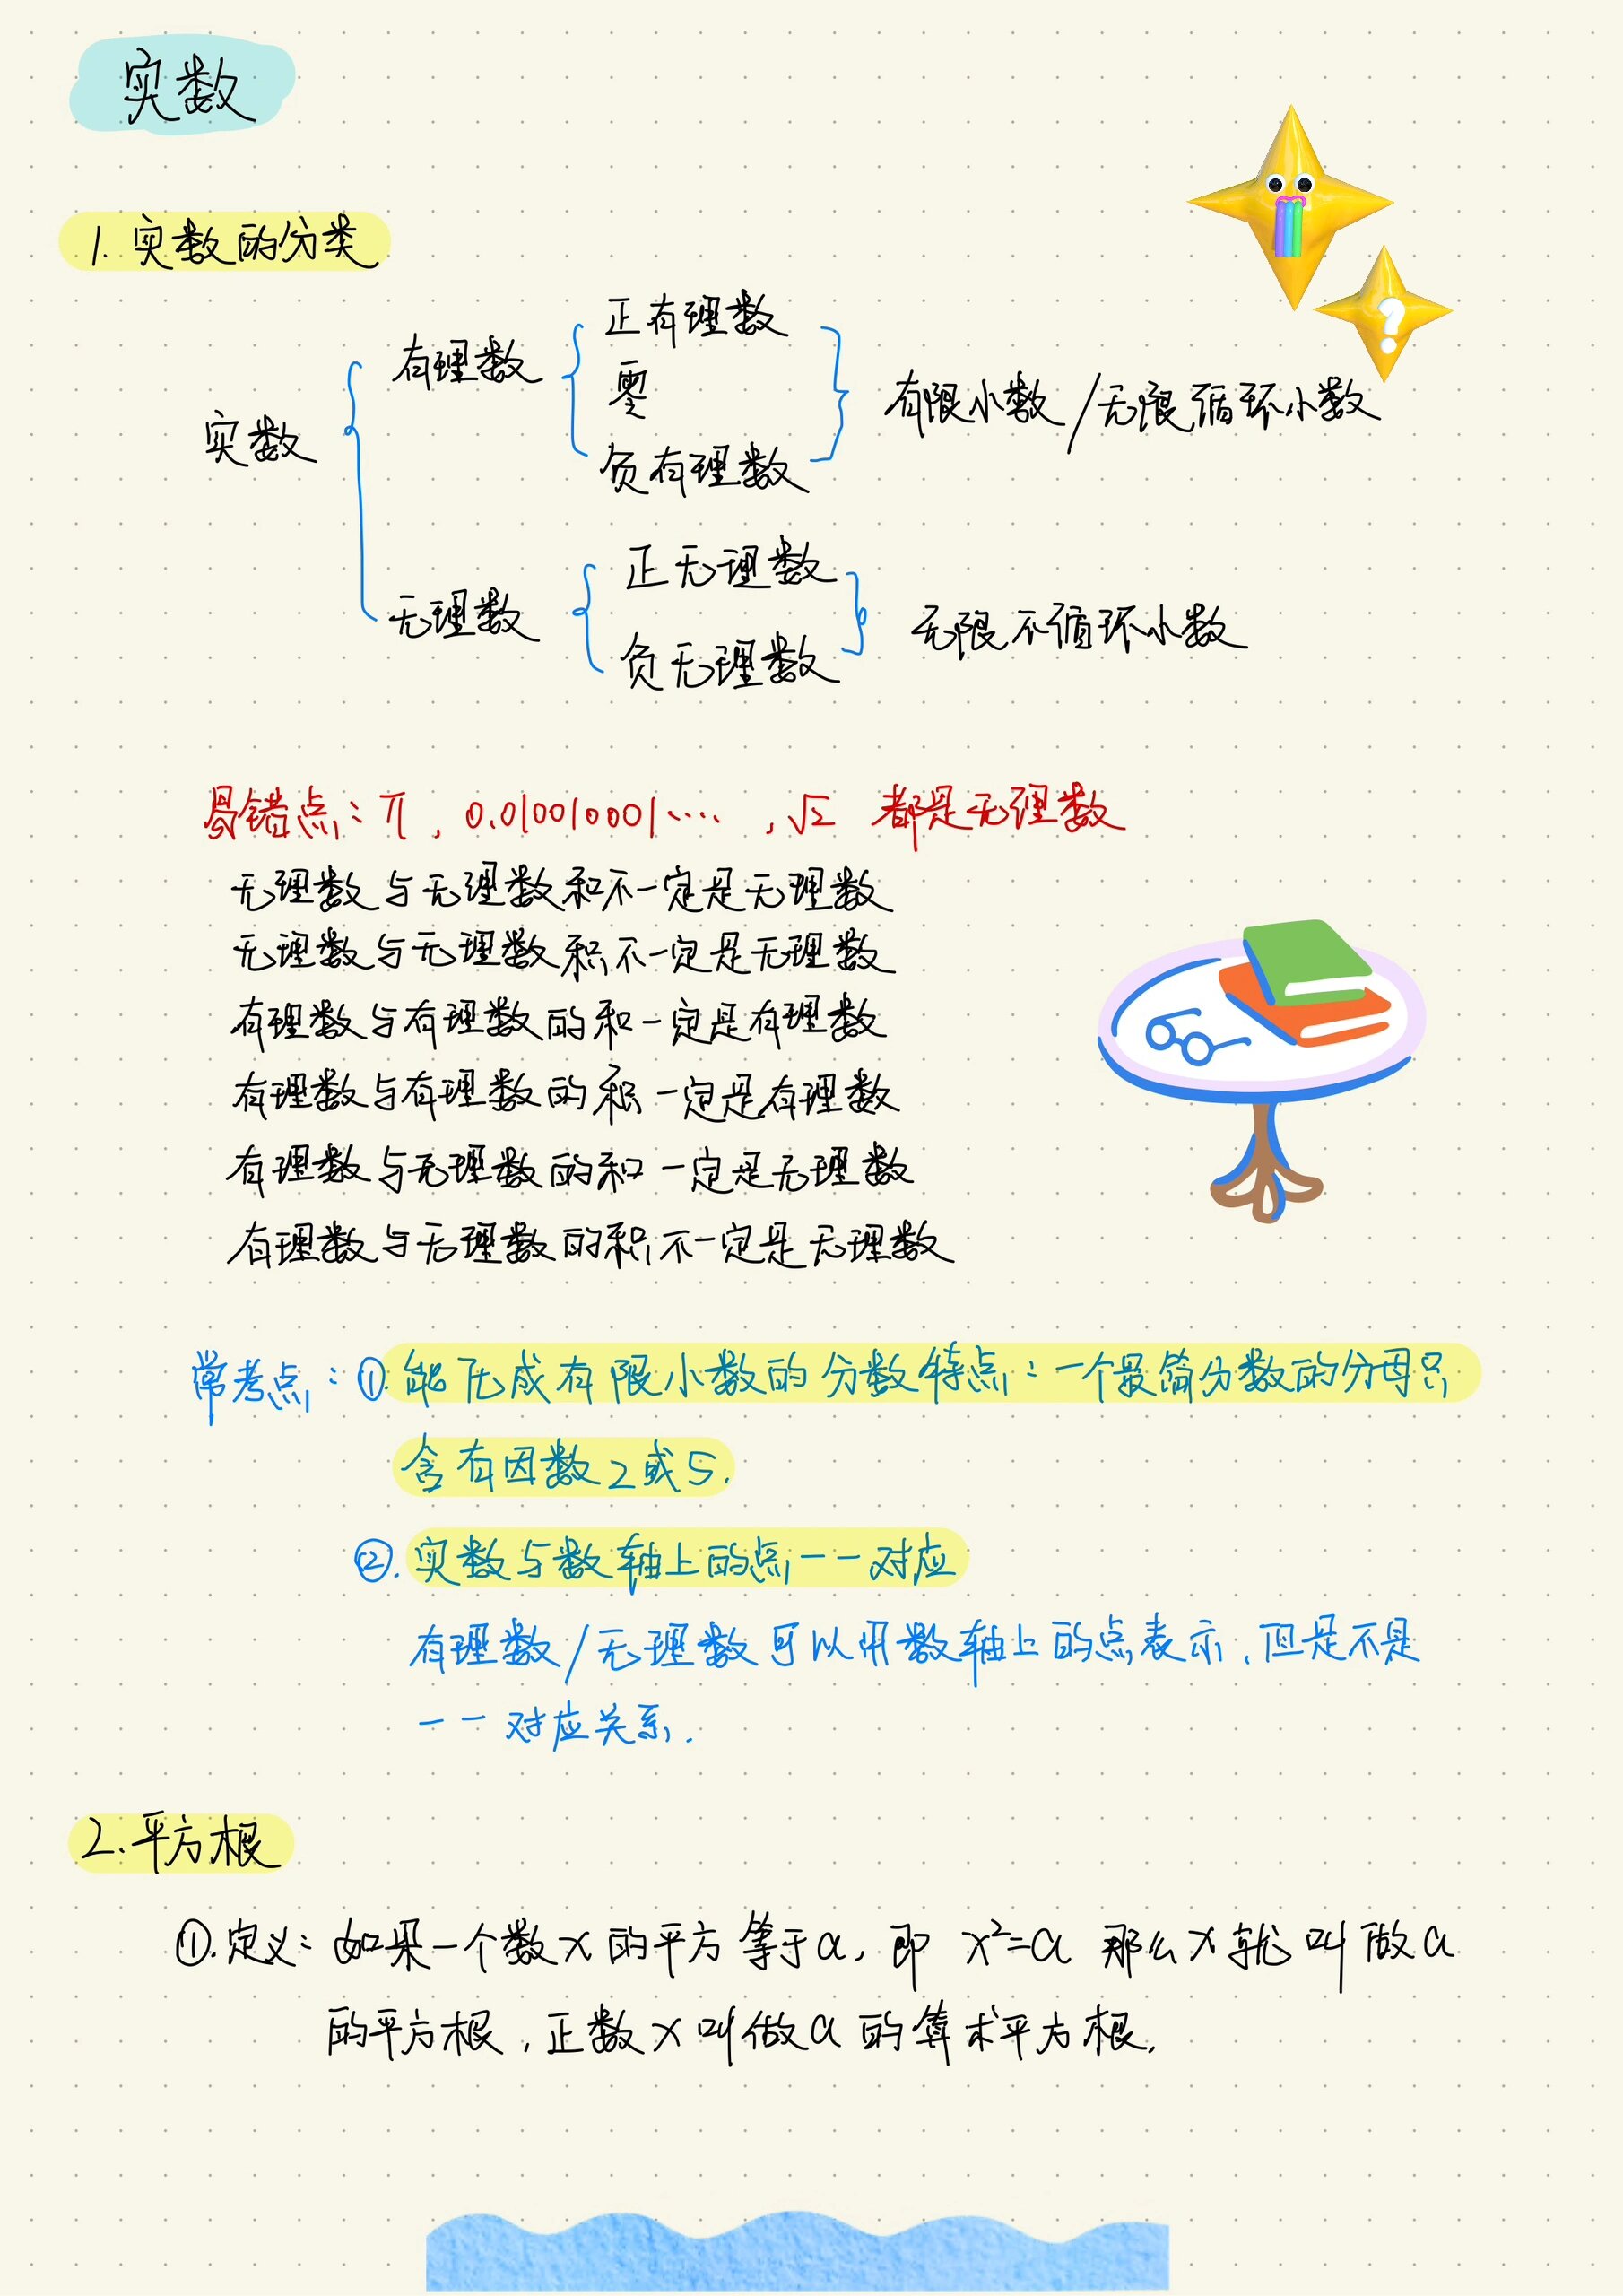 实数
1. 实数的分类
正有理数
有理数
零
有限小数/无限循环小数
实数
负有理数
正无理数
无理数
无限不循环小数
负无理数
易错点：π，0.010010001····，√2 都是无理数
无理数与无理数和不一定是无理数
无理数与无理数积不一定是无理数
有理数与有理数的和一定是有理数
有理数与有理数的积一定是有理数
有理数与无理数的和一定是无理数
有理数与无理数的积不一定是无理数
常考点：①.能化成有限小数的分数特点：一个最简分数的分母只
含有因数2或5.
②.实数与数轴上的点一一对应
有理数/无理数可以用数轴上的点表示，但是不是
一一对应关系.
2.平方根
①.定义：如果一个数x的平方等于a，即 x²=a 那么x就叫做a
的平方根，正数x叫做a的算术平方根.
?